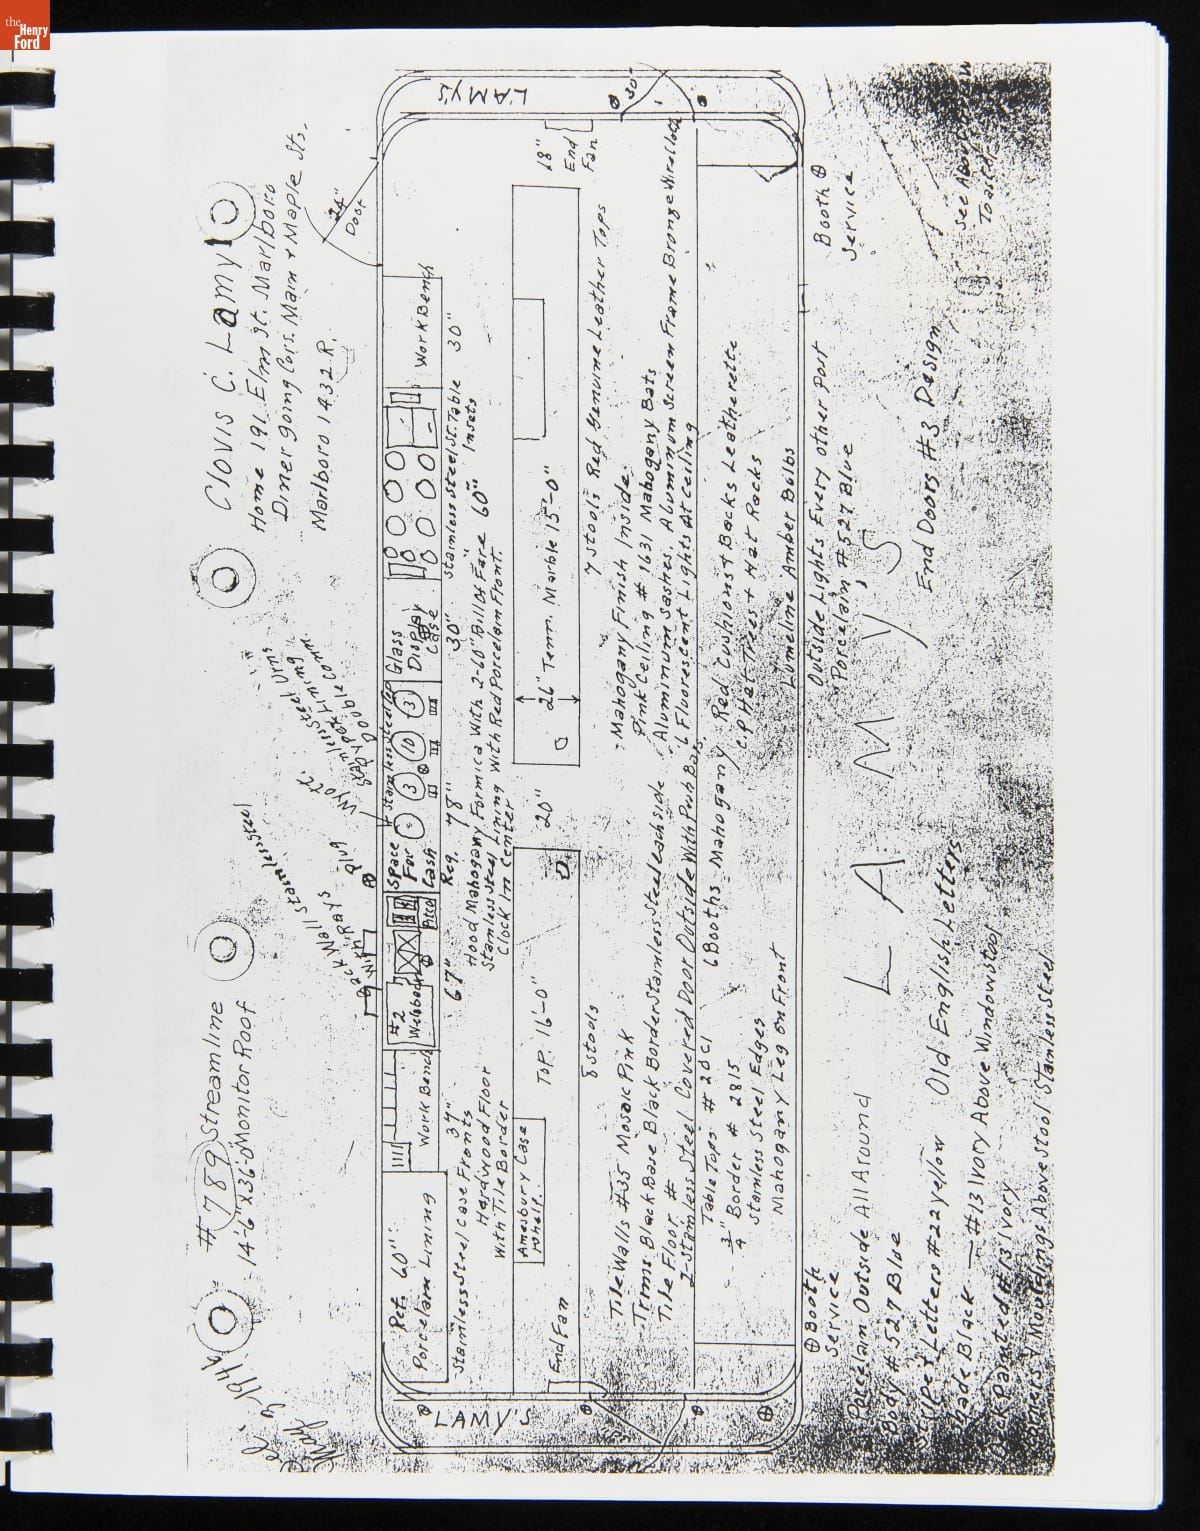 the
Henry
Ford
# 789 Streamline
14'-6" x 36'-0" Monitor Roof
Clovis C. Lamy
Home 191 Elm St. Marlboro
Diner Going Cors. Main + Maple Sts.
Marlboro 1432 R.
Back Wall Stainless Steel
With Rays
Plug
24"
Door
LAMY'S
30"
Ref. 60"
Porcelain Lining
Work Bench
#2
Space
For
Cash
Reg.
3
10
3
Glass
Display
Case
Work Bench
Stainless Steel Case Fronts
34"
67"
78"
30"
Stainless Steel St. Table
30"
Hardwood Floor
With Tile Border
Hood Mahogany Formica With 2-60" Bill of Fare 60" Insets
Stainless Steel Lining With Red Porcelain Front.
Clock in Center
Amesbury Case
End Fan
Top. 16'-0"
20"
26" Tenn. Marble 15'-0"
18"
End
Fan
8 stools
7 stools Red Genuine Leather Tops
Tile Walls #35 Mosaic Pink
Trims-Black Base Black Border Stainless Steel each side
Tile Floor #
2-Stainless Steel Covered Door Outside With Push Bars
Mahogany Finish Inside
Pink Ceiling # 1631 Mahogany Bats
Aluminum Sashes, Aluminum Screen Frame Bronze Wire Cloth
6 Fluorescent Lights At Ceiling
Table Tops # 20C1
3/4" Border # 2815
Stainless Steel Edges
Mahogany Leg on Front
6 Booths - Mahogany, Red Cushions + Backs Leatherette
Hat Trees + Hat Racks
Lumeline Amber Bulbs
LAMY'S
Booth
Service
Outside Lights Every other Post
Porcelain #527 Blue
Booth
Service
Porcelain Outside All Around
Body # 527 Blue
Stripe & Letters #22 yellow
Old English Letters
Shade Black — #13 Ivory Above Windowstool
LAMY'S
End Doors #3 Design
Toaster
Stainless Steel